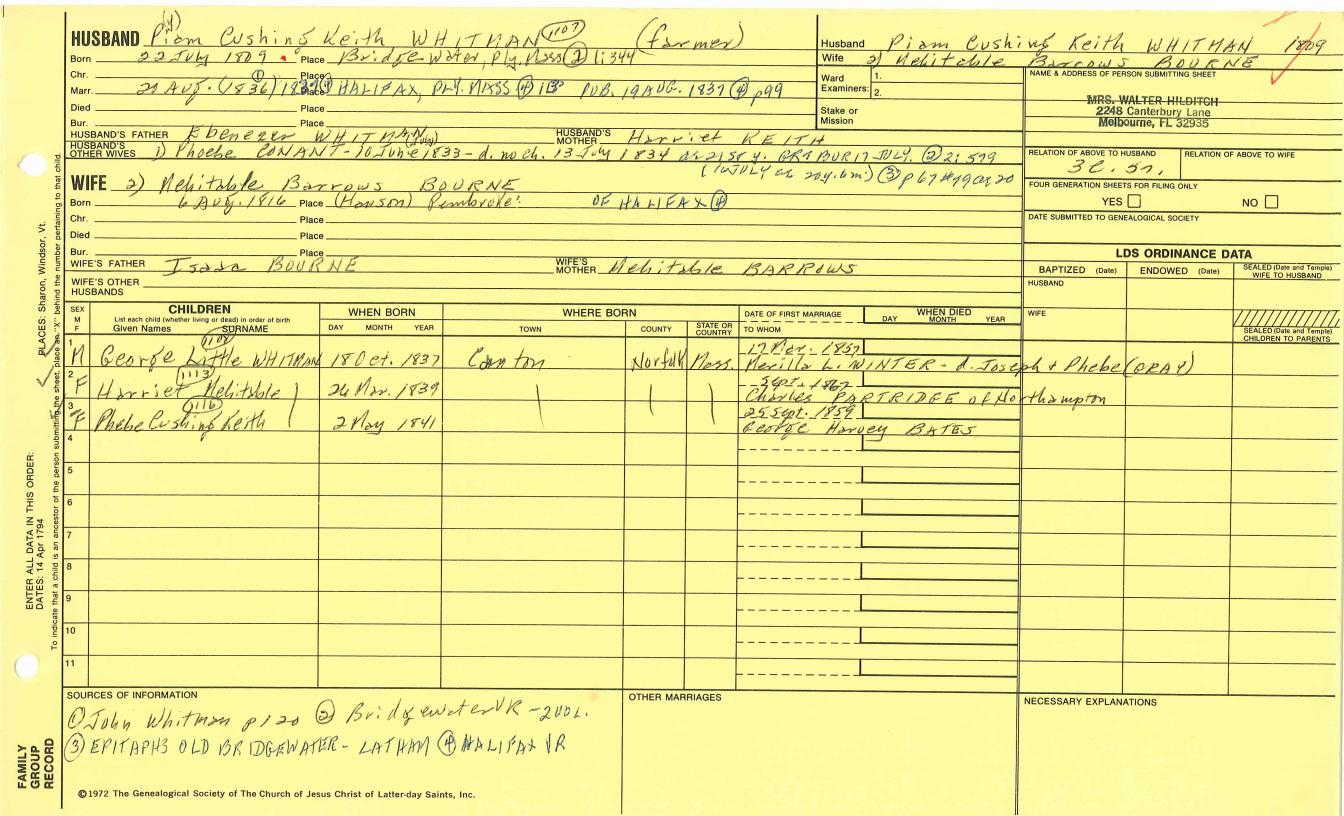 HUSBAND Piam Cushing Keith WHITMAN 1107 (farmer)
(y)
Born 22 July 1809 Place Bridgewater, Ply. Mass ② 1:344
Chr. Place
Marr. 29 Aug. (1836) ① Place ④ HALIFAX, PLY. MASS ④ PUB. 19 AUG. 1837 ④ p99
Died Place
Bur. Place
HUSBAND'S FATHER Ebenezer WHITMAN HUSBAND'S MOTHER Harriet KEITH
HUSBAND'S OTHER WIVES 1) Phoebe CONANT - 16 June 1833 - d. no ch. 13 July 1834 ae 21st y. GRT BUR 17 JULY. ② 2:579
(16 JULY ae 20y. 6m.) ③ p 67 #19 or 20
WIFE 2) Mehitable Barrows BOURNE
Born 6 Aug. 1816 Place (Hanson) Pembroke: OF HALIFAX ④
Chr. Place
Died Place
Bur. Place
WIFE'S FATHER Isaea BOURNE WIFE'S MOTHER Mehitable BARROWS
WIFE'S OTHER HUSBANDS
Husband Piam Cushing Keith WHITMAN 1809
Wife 2) Mehitable Barrows BOURNE
Ward Examiners: 1.
2.
Stake or Mission
NAME & ADDRESS OF PERSON SUBMITTING SHEET
MRS. WALTER HILDITCH
2248 Canterbury Lane
Melbourne, FL 32935
RELATION OF ABOVE TO HUSBAND RELATION OF ABOVE TO WIFE
3c. 5r.
FOUR GENERATION SHEETS FOR FILING ONLY
YES NO
DATE SUBMITTED TO GENEALOGICAL SOCIETY
LDS ORDINANCE DATA
BAPTIZED (Date) ENDOWED (Date) SEALED (Date and Temple) WIFE TO HUSBAND
HUSBAND
WIFE
SEALED (Date and Temple) CHILDREN TO PARENTS
SEX M F
CHILDREN
List each child (whether living or dead) in order of birth
Given Names SURNAME
WHEN BORN
DAY MONTH YEAR
WHERE BORN
TOWN COUNTY STATE OR COUNTRY
DATE OF FIRST MARRIAGE
TO WHOM
WHEN DIED
DAY MONTH YEAR
1 M George Little WHITMAN 1108 18 Oct. 1837 Canton Norfolk Mass. 17 Mar. 1857
Merilla L. WINTER - d. Joseph + Phebe (GRAY)
2 F Harriet Mehitable 1113 26 Mar. 1839 Sept. 1862
Charles PARTRIDGE of Northampton
3 F Phebe Cushing Keith 1116 2 May 1841 25 Sept. 1859
George Harvey BATES
4
5
6
7
8
9
10
11
SOURCES OF INFORMATION
① John Whitman p120 ② Bridgewater VR - 2 VOL.
③ EPITAPHS OLD BRIDGEWATER - LATHAM ④ HALIFAX VR
OTHER MARRIAGES
NECESSARY EXPLANATIONS
©1972 The Genealogical Society of The Church of Jesus Christ of Latter-day Saints, Inc.
FAMILY GROUP RECORD
ENTER ALL DATA IN THIS ORDER:
DATES: 14 Apr 1794
PLACES: Sharon, Windsor, Vt.
To indicate that a child is an ancestor of the person submitting the sheet, place an "X" behind the number pertaining to that child